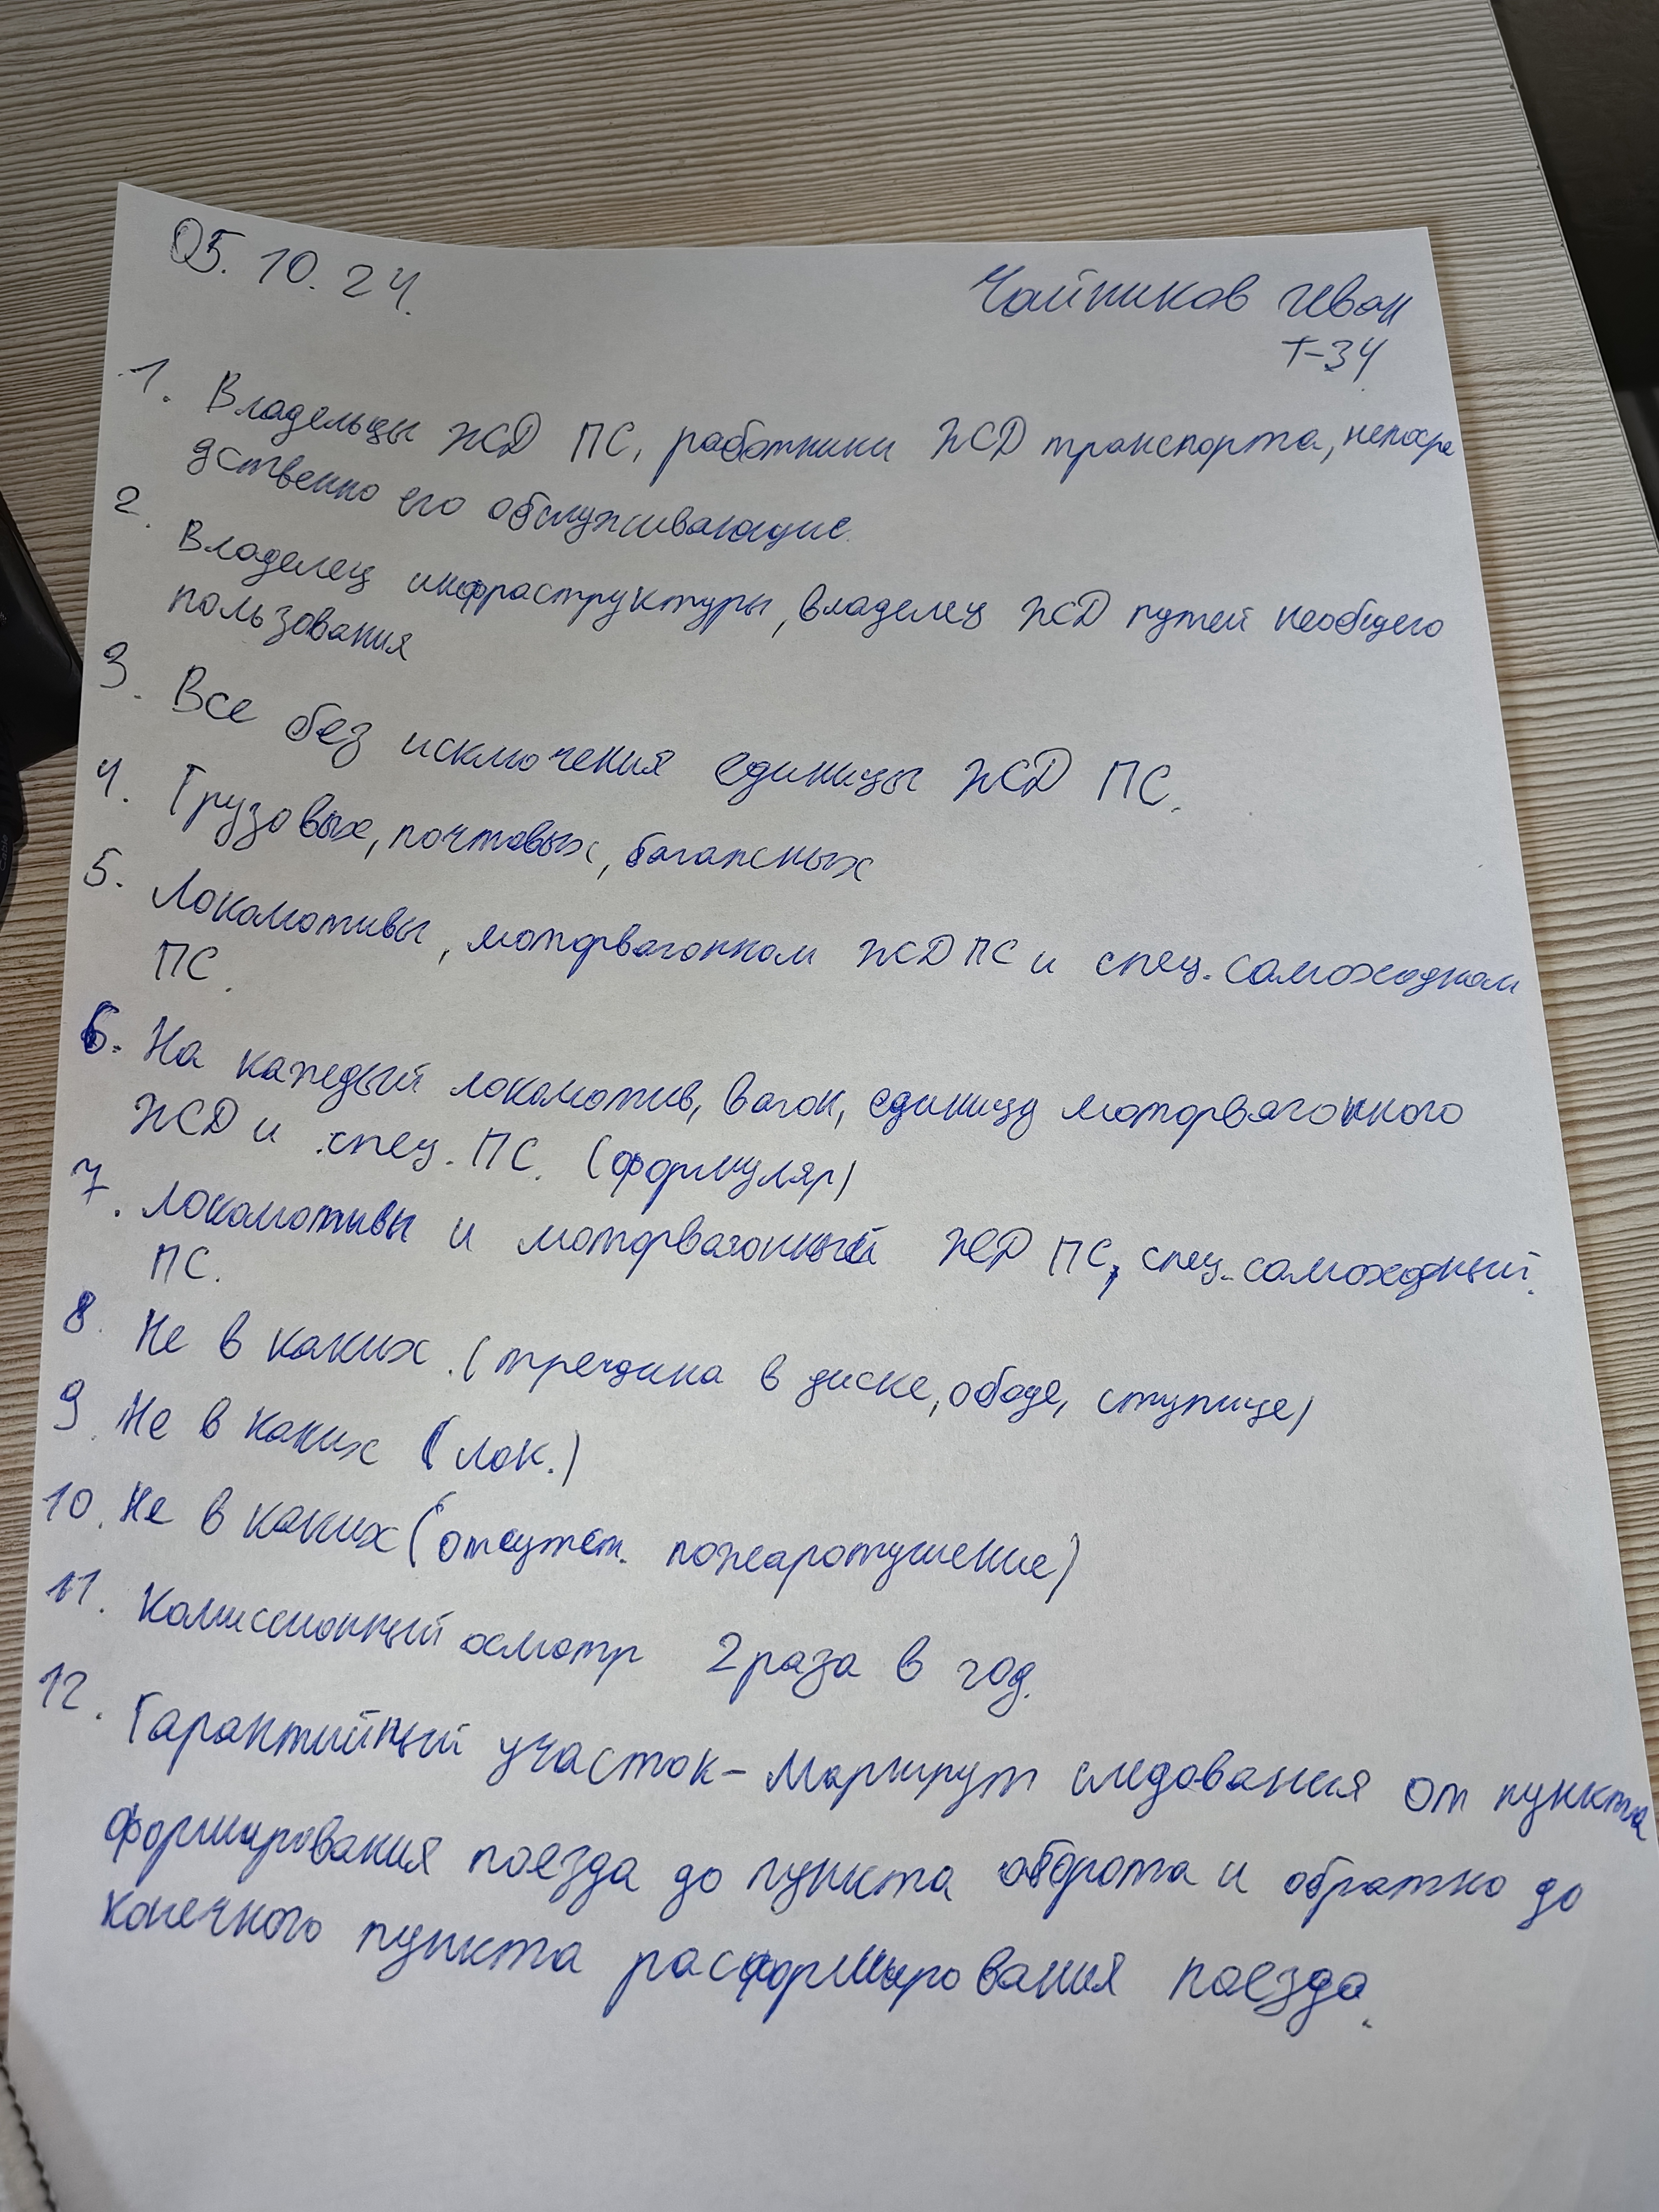 05.10.24.
Чайников Иван
Т-34
1. Владельцы ЖД ПС, работники ЖД транспорта, непосре
дственно его обслуживающие.
2. Владелец инфраструктуры, владелец ЖД путей необщего
пользования
3. Все без исключения единицы ЖД ПС.
4. Грузовых, почтовых, багажных
5. Локомотивы, моторвагонном ЖД ПС и спец. самоходном
ПС.
6. На каждый локомотив, вагон, единицу моторвагонного
ЖД и спец. ПС. (формуляр)
7. Локомотивы и моторвагонный ЖД ПС, спец. самоходный.
ПС.
8. Не в каких. (трещина в диске, ободе, ступице)
9. Не в каких (лок.)
10. Не в каких (отсутст. пожаротушение)
11. Комиссионный осмотр 2 раза в год.
12. Гарантийный участок - Маршрут следования от пункта
формирования поезда до пункта оборота и обратно до
конечного пункта расформирования поезда.